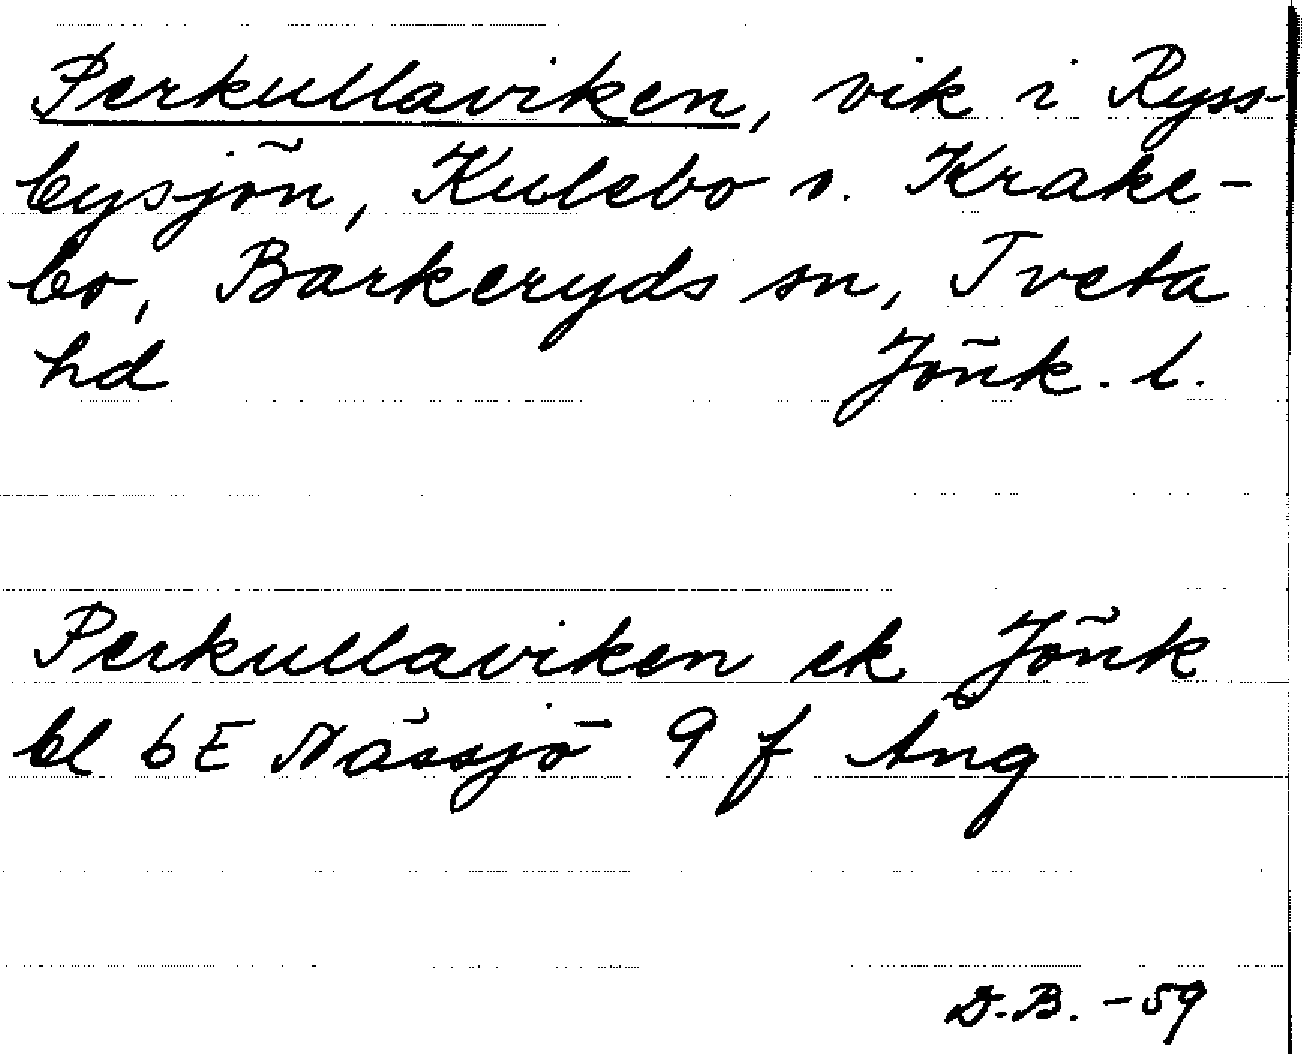 Perkullaviken, vik i Ryss-
bysjön, Kulebo o. Krake-
bo, Barkeryds sn, Tveta
hd Jönk. l.
Perkullaviken ek Jönk
bl 6E Nässjö 9 f Ang
D.B. -59